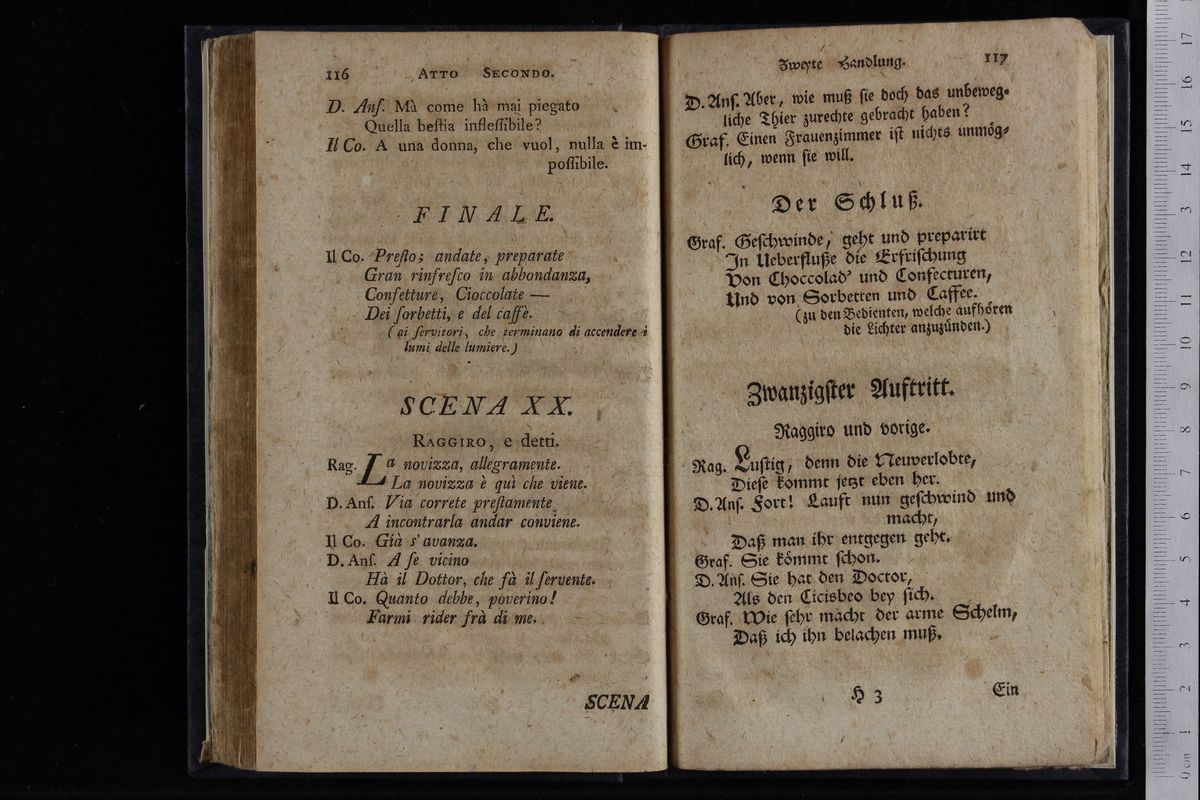 116 ATTO SECONDO.
D. Anſ. Mà come hà mai piegato
Quella beſtia infleſſibile?
Il Co. A una donna, che vuol, nulla è im-
poſſibile.
FINALE.
Il Co. Preſto; andate, preparate
Gran rinfreſco in abbondanza,
Confetture, Cioccolate —
Dei ſorbetti, e del caffè.
(ai ſervitori, che terminano di accendere i
lumi delle lumiere.)
SCENA XX.
RAGGIRO, e detti.
Rag. La novizza, allegramente.
La novizza è quì che viene.
D. Anſ. Via correte preſtamente
A incontrarla andar conviene.
Il Co. Già s'avanza.
D. Anſ. A ſe vicino
Hà il Dottor, che fà il ſervente.
Il Co. Quanto debbe, poverino!
Farmi rider frà di me.
SCENA
Zweyte Handlung. 117
D. Anſ. Aber, wie muß ſie doch das unbeweg-
liche Thier zurechte gebracht haben?
Graf. Einen Frauenzimmer iſt nichts unmög-
lich, wenn ſie will.
Der Schluß.
Graf. Geſchwinde, geht und preparirt
In Ueberfluße die Erfriſchung
Von Choccolad' und Confecturen,
Und von Sorbetten und Caffee.
(zu den Bedienten, welche aufhören
die Lichter anzuzünden.)
Zwanzigſter Auftritt.
Raggiro und vorige.
Rag. Luſtig, denn die Neuverlobte,
Dieſe kommt jetzt eben her.
D. Anſ. Fort! Lauft nun geſchwind und
macht,
Daß man ihr entgegen geht.
Graf. Sie kömmt ſchon.
D. Anſ. Sie hat den Doctor,
Als den Cicisbeo bey ſich.
Graf. Wie ſehr macht der arme Schelm,
Daß ich ihn belachen muß.
H 3 Ein
0 cm 1 2 3 4 5 6 7 8 9 10 11 12 13 14 15 16 17